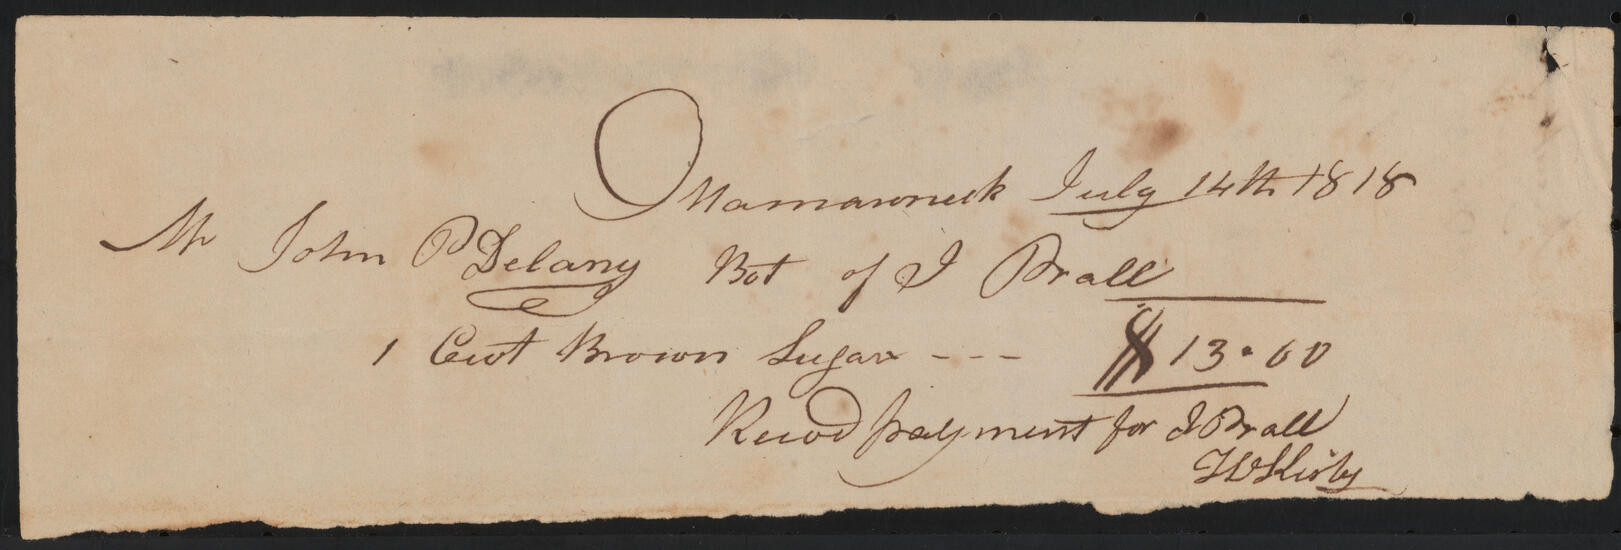 Mamaroneck July 14th 1818
Mr John P Delany Bot of I Prall
1 Cwt Brown Sugar - - - $ 13.00
Recvd payment for I Prall
Kirby